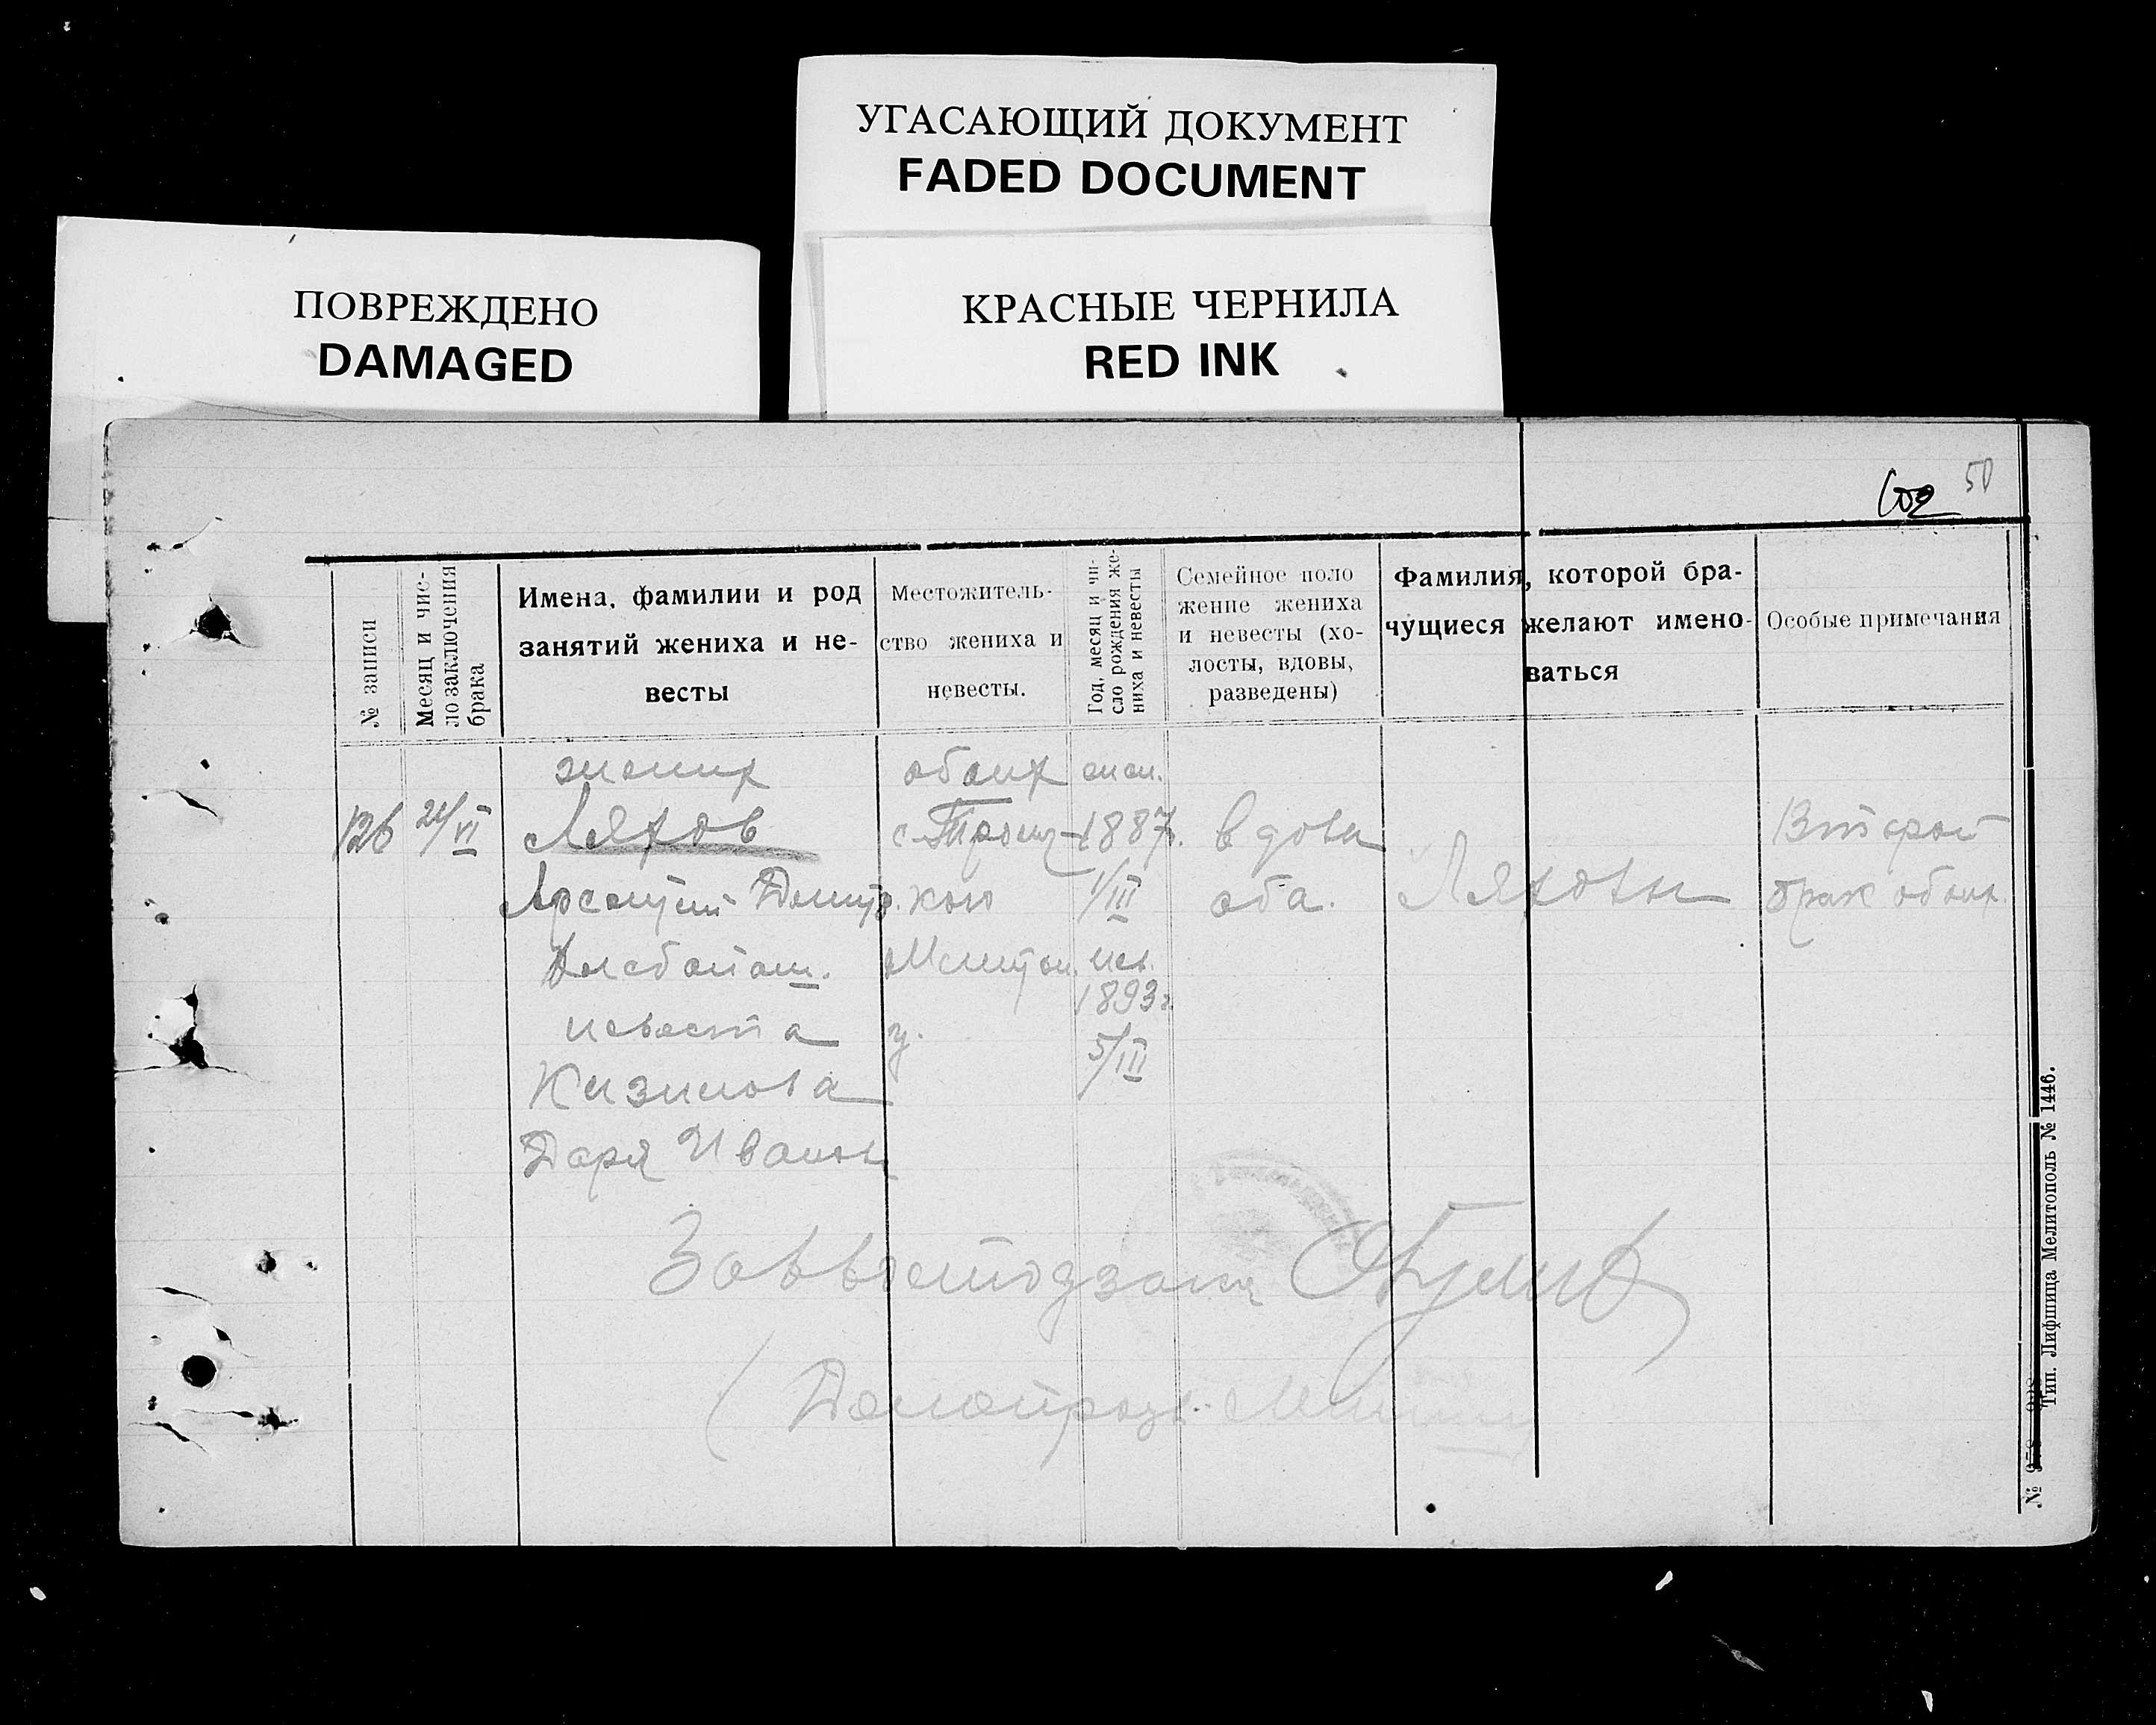 УГАСАЮЩИЙ ДОКУМЕНТ
FADED DOCUMENT
ПОВРЕЖДЕНО
DAMAGED
КРАСНЫЕ ЧЕРНИЛА
RED INK
50
№ записи
Месяц и чис-
ло заключения
брака
Имена, фамилии и род
занятий жениха и не-
весты
Местожитель-
ство жениха и
невесты.
Год, месяц и чи-
сло рождения же-
ниха и невесты
Семейное поло
жение жениха
и невесты (хо-
лосты, вдовы,
разведены)
Фамилия, которой бра-
чущиеся желают имено-
ваться
Особые примечания
126
жених
Ляхов
Дмитр.
Хлебопаш.
невеста
Дарья Иванов
обоих
с. Троиц-
кою
у.
жен.
1887г.
1/III
нев.
1893г.
5/III
вдовы
оба.
Ляховы
Второй
брак обоих
Тип. Лифшица Мелитополь № 1446.